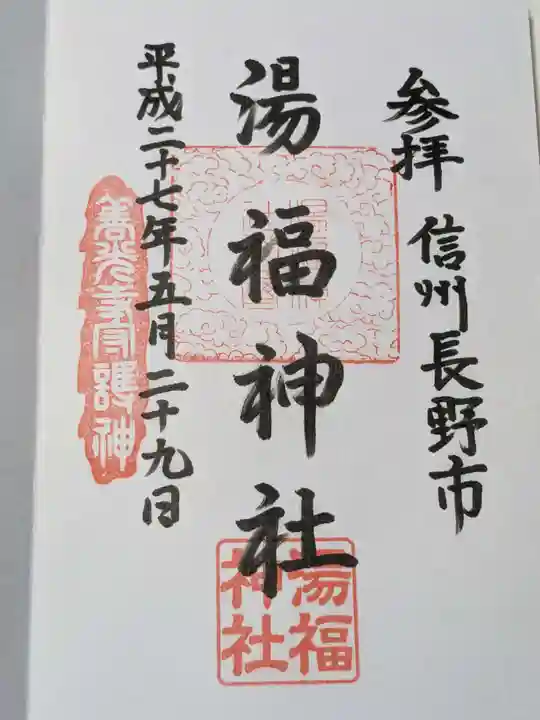 参拝 信州長野市
湯福神社
湯福
神社
平成二十七年五月二十九日
善光寺守護神